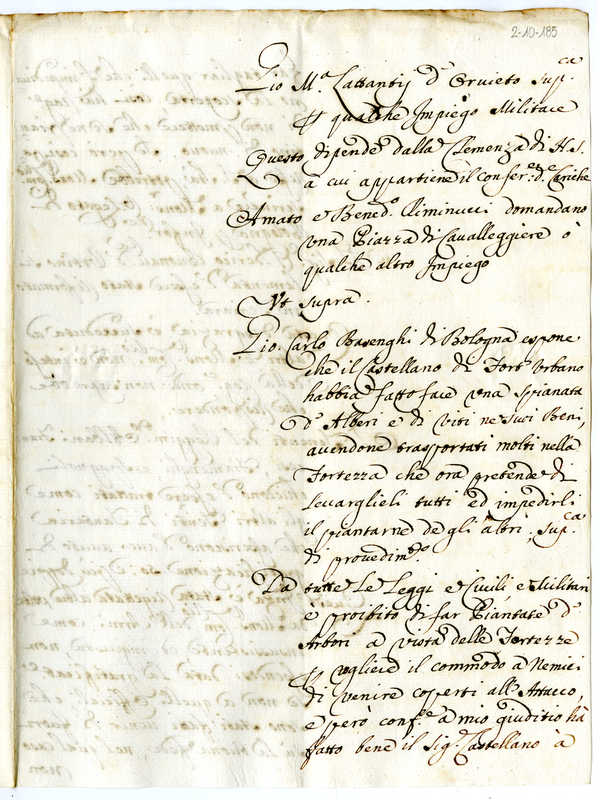 2-10-185
Gio M.ª Lattantij d'Orvieto sup.ca
qualche Impiego Militare
Questo dipende dalla Clemenza di N.S.
a cui appartiene il confer.e d.e Cariche
Amato e Bened.o Riminucci domandano
una Piazza di Cavalleggiere ò
qualche altro Impiego
Ut supra.
Gio. Carlo Basenghi di Bologna espone
che il Castellano di Fort' Urbano
habbia fatto fare una spianata
d'Alberi e di viti ne suoi Beni,
avendone trasportati molti nella
Fortezza che ora pretende di
levarglieli tutti ed impedirli
il piantarne de gli altri, sup.ca
di provedim.to
Da tutte le Leggi e Civili e Militari
è proibito di far Piantate d'
Arbori a vista delle Fortezze
togliere il commodo a Nemici
di venire coperti all'Attacco,
e però conf.e a mio giuditio hà
fatto bene il Sig.r Castellano à